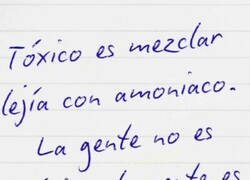 Tóxico es mezclar
lejía con amoniaco.
La gente no es